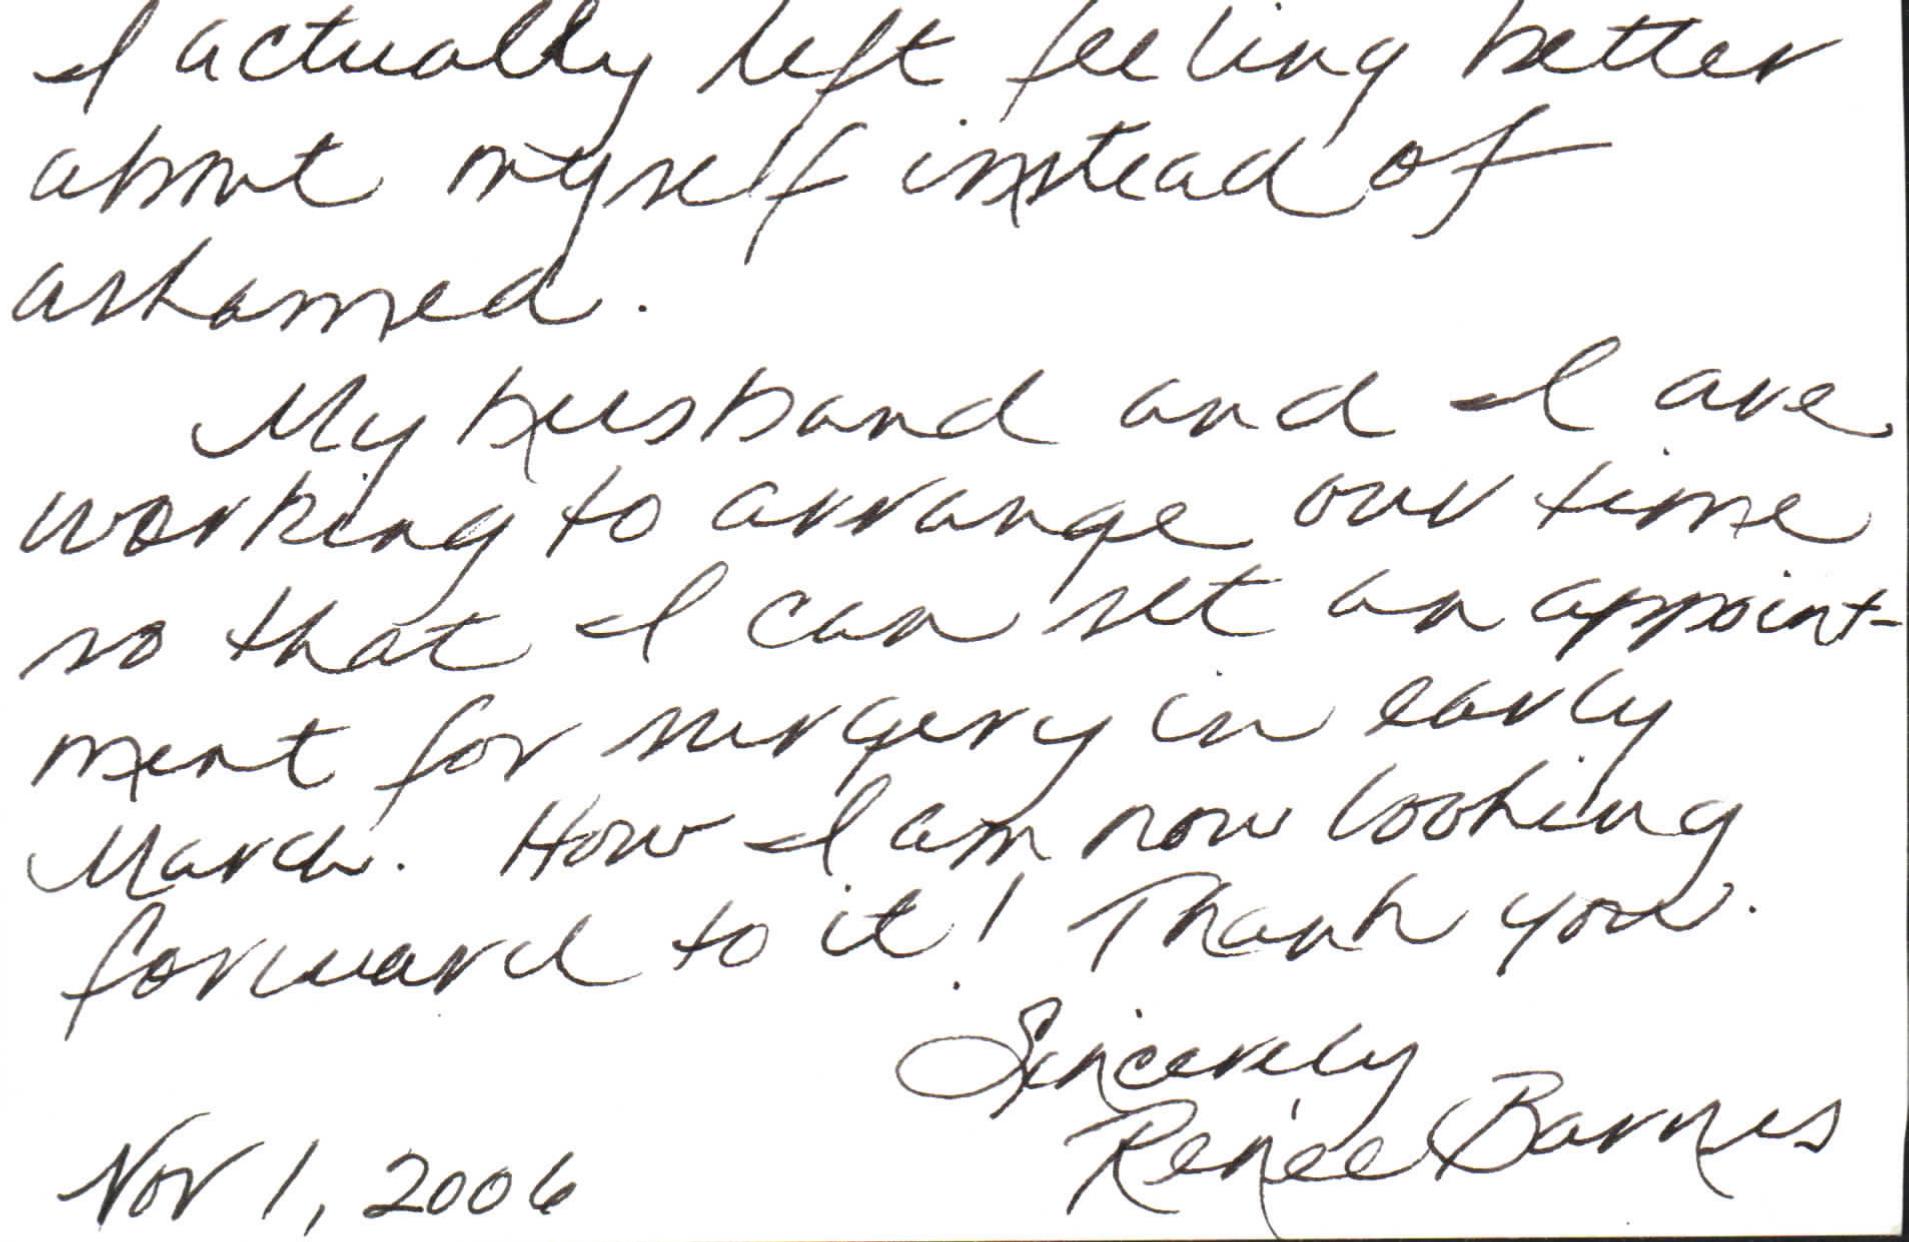 I actually left feeling better
about myself instead of
ashamed.
My husband and I are
working to arrange our time
so that I can set an appoint-
ment for surgery in early
March. How I am now looking
forward to it! Thank you.
Sincerely
Renée Barnes
Nov 1, 2006